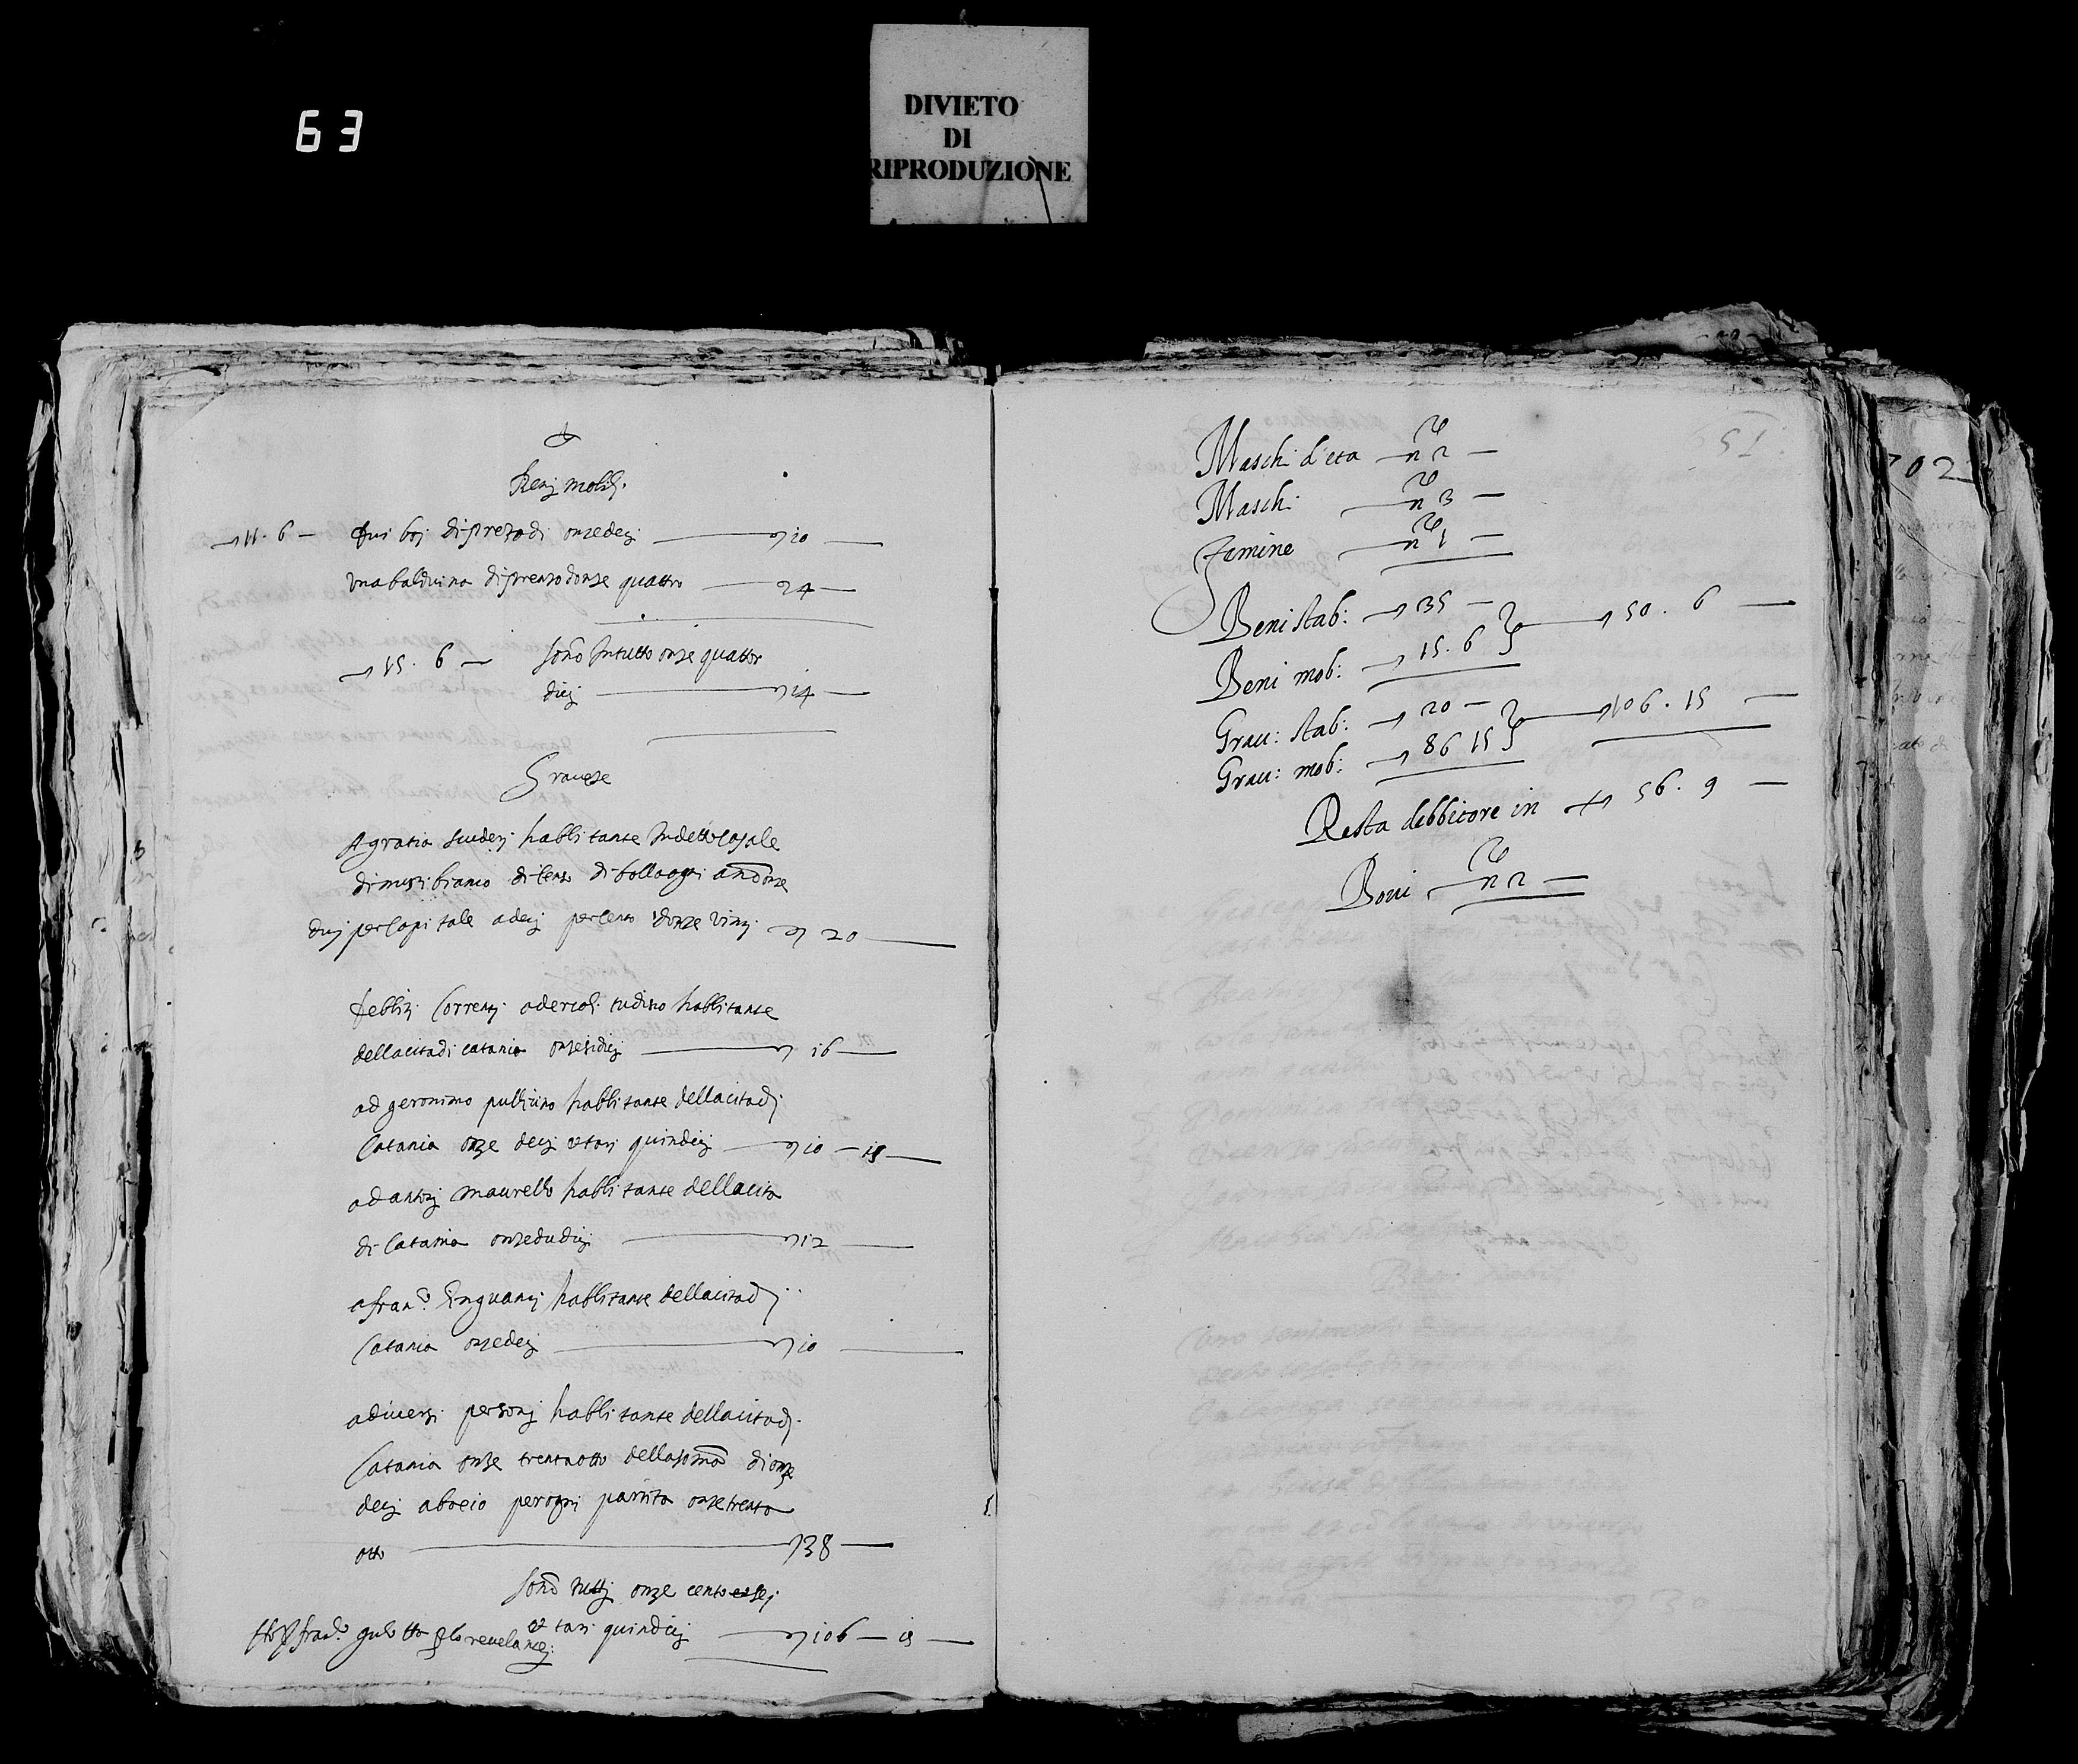 63
DIVIETO
DI
RIPRODUZIONE
Beni mobili
11. 6 — Dui boi di prezo di onze deci — 10 —
una balduina di prenzo d onze quattro — 4 —
15. 6 — sono in tutto onze quattor
dici — 14 —
Graveze
A gratia habbitante in detto casale
di bianco di censo di bolla ogni anno onze
dui per capitale a deci per cento d'onze vinti — 20 —
debbiti correnti ad habbitante
della cita di catania onze sidici — 16 —
ad geronimo habbitante della cita di
Catania onze deci et tari quindici — 10 — 15 —
ad antoni maurello habbitante della cita
di Catania onze dudici — 12 —
a fran.co habbitante della cita di
Catania onze deci — 10 —
a diversi personi habbitante della cita di
Catania onze trentaotto della somma di onze
deci a bascio per ogni partita onze trenta
otto — 38 —
sono tutti onze cento et sei
et tari quindici — 106 — 15 —
fran.co revelante
Maschi d'eta — n.o 2 —
Maschi — n.o 3 —
Femine — n.o 1 —
Beni stab: — 35 — 50 . 6 —
Beni mob: — 15. 6
Grau: stab: — 20 — 106 . 15 —
Grau: mob: — 86 15
Resta debbitore in 56 . 9 —
Boui — n.o 2 —
702